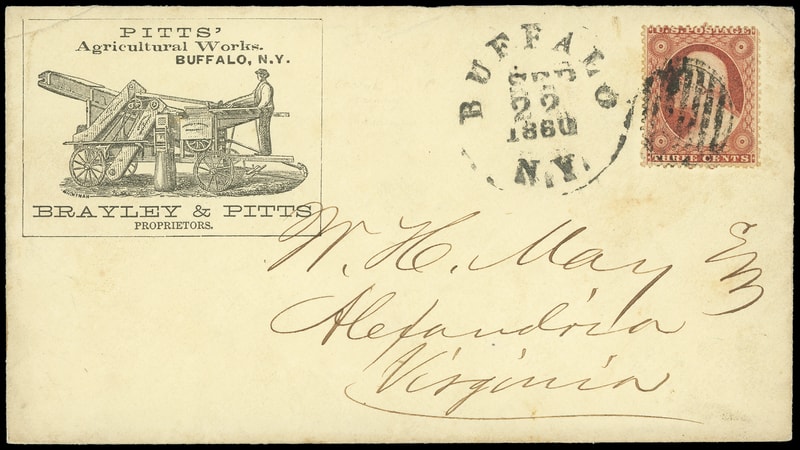 PITTS'
Agricultural Works.
BUFFALO, N.Y.
BRAYLEY & PITTS
PROPRIETORS.
BUFFALO
SEP
22
1860
N.Y.
U.S. POSTAGE
THREE CENTS
W. H. May
Alexandria
Virginia